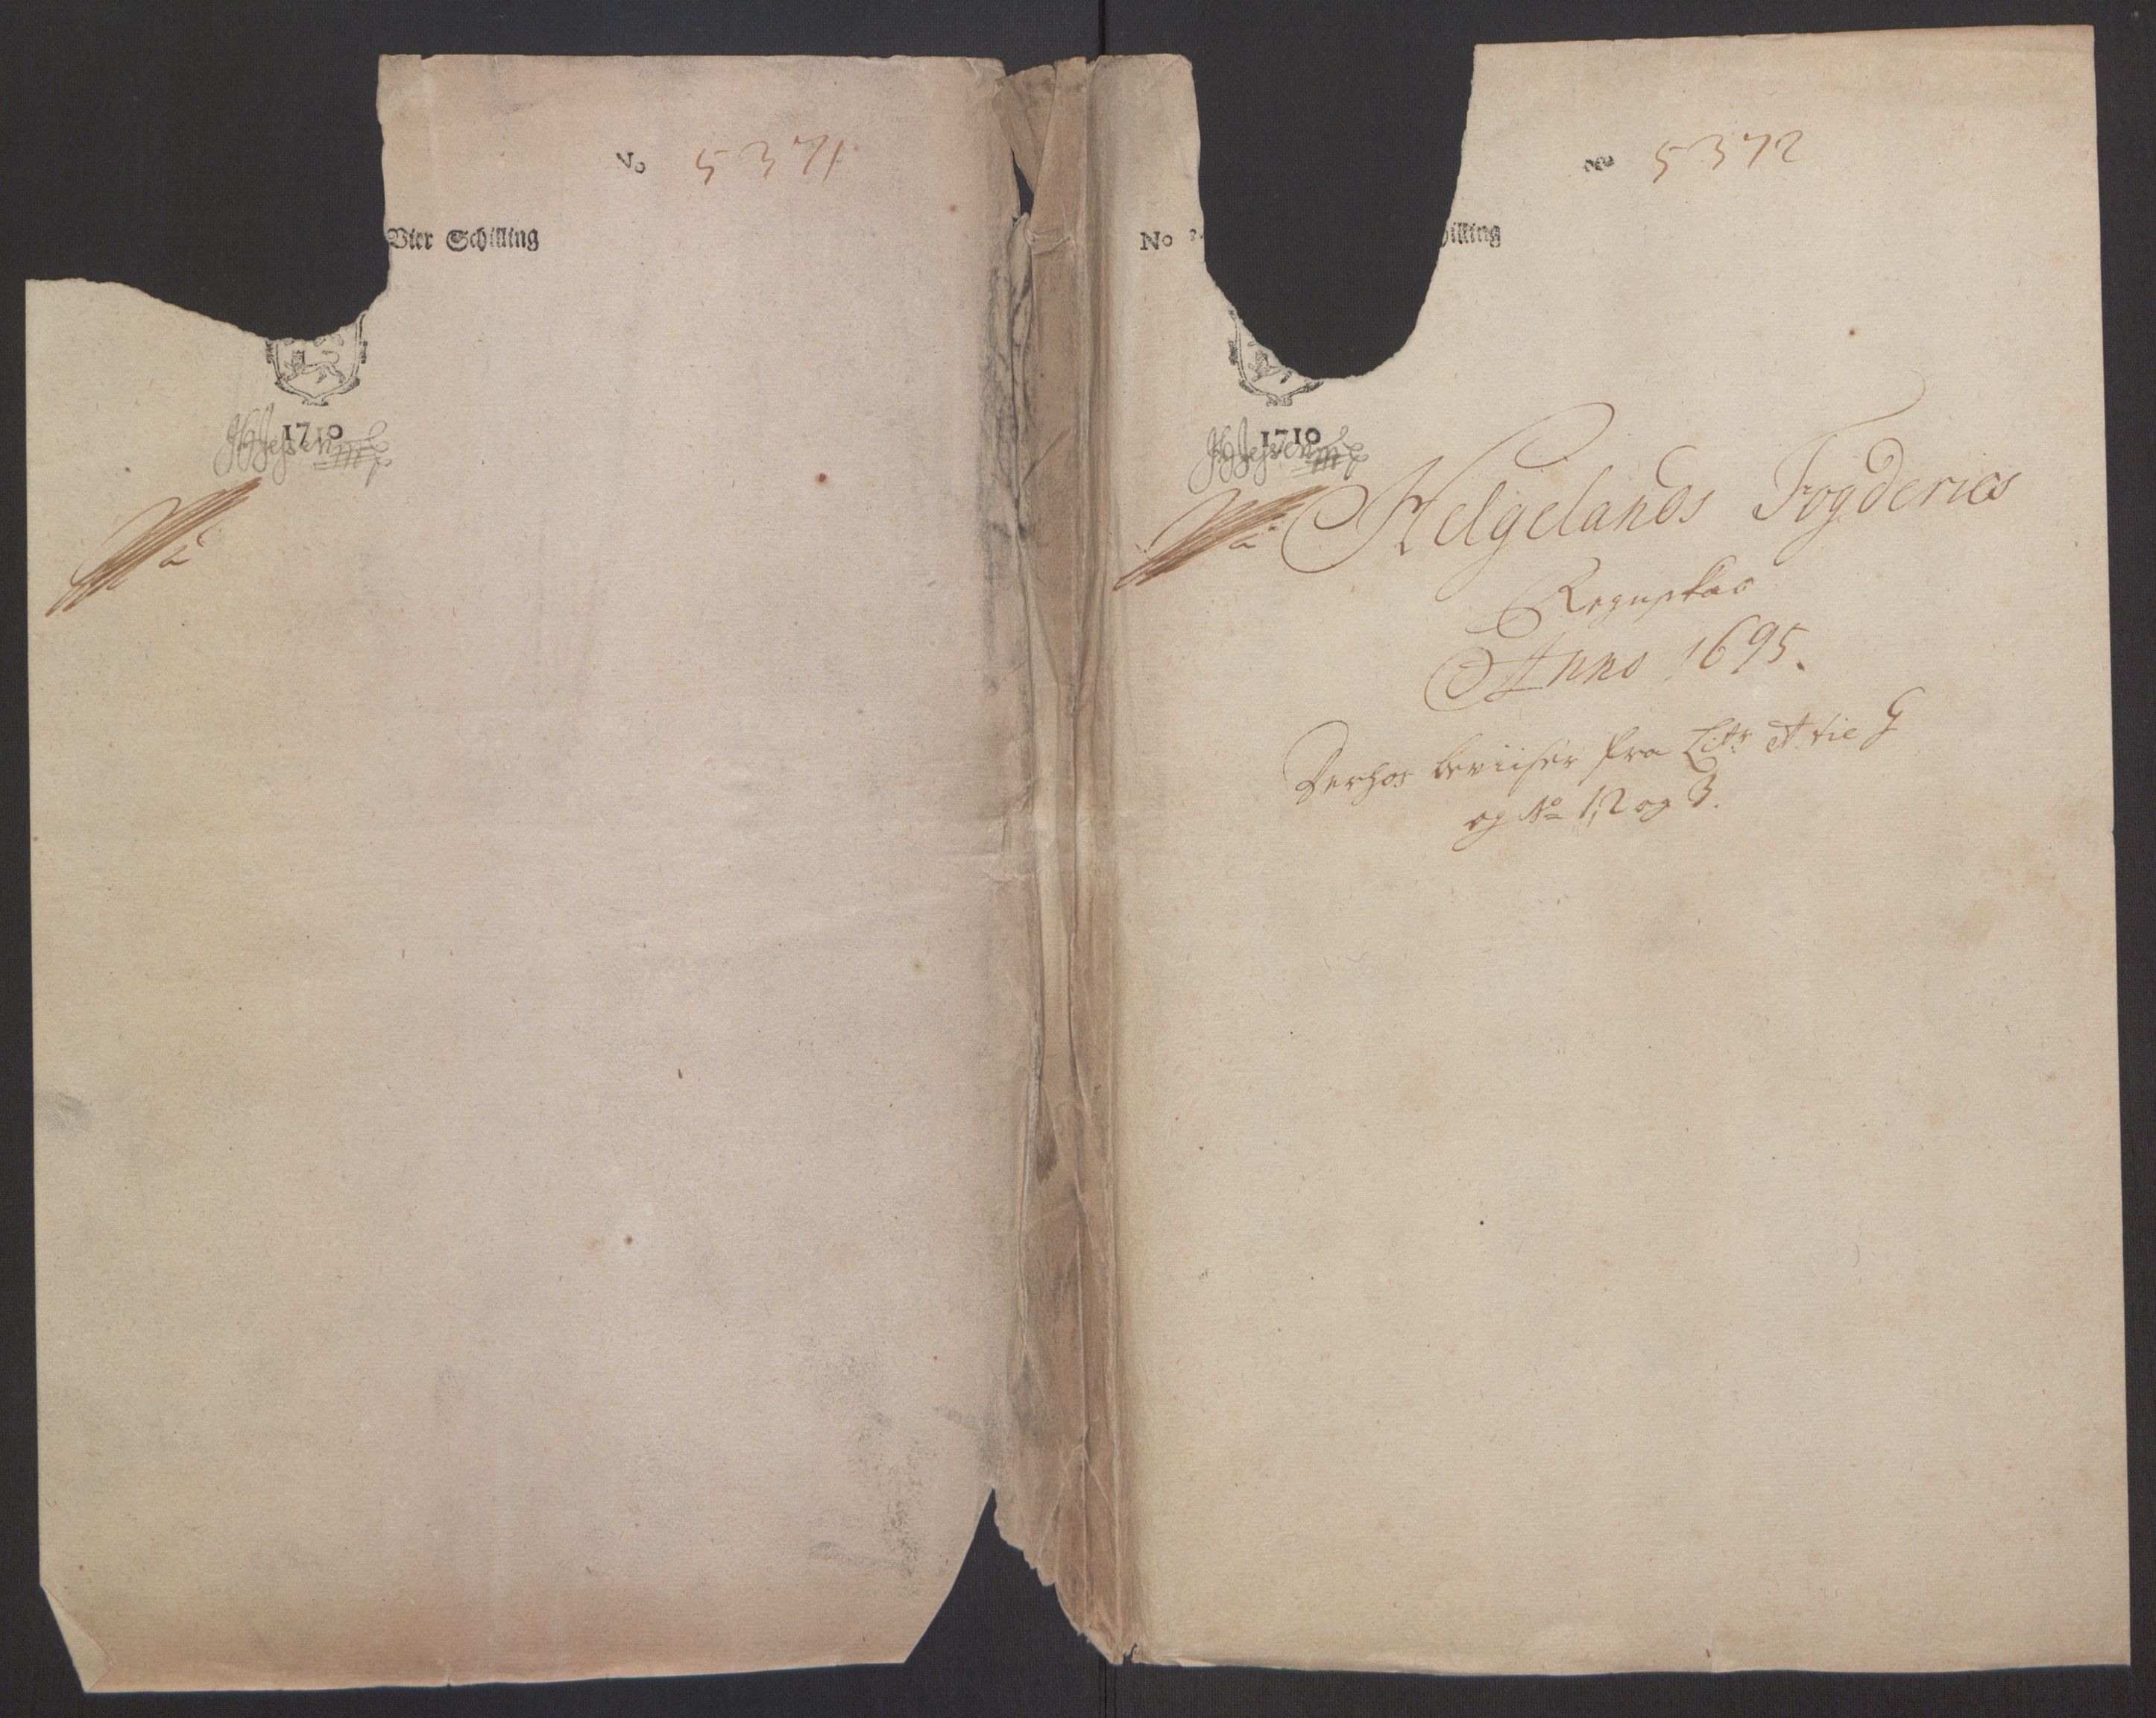 No 5371
Vier Schilling
1710
HJessen
No 5372
No
illing
1710
HJessen
Helgelands Fogderies
Regnskab
Anno 1695.
Derhos beviiser fra Litr A tie G
og No 1, 2 og 3.